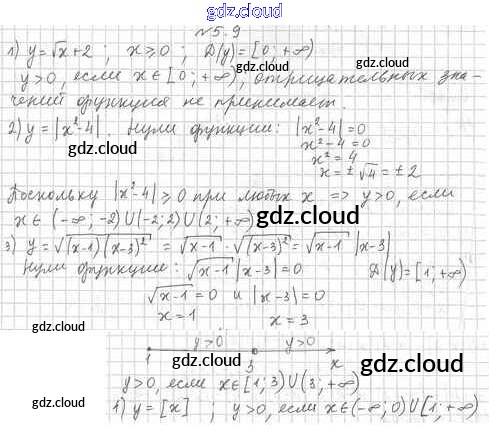 gdz.cloud
gdz.cloud
№5.9
1) y=√x+2 ; x⩾0 ; D(y)=[0;+∞)
y>0, если x∈[0;+∞), отрицательных зна-
чений функция не принимает.
2) y=|x²-4|. Нули функции: |x²-4|=0
x²-4=0
gdz.cloud
x²=4
gdz.cloud
x=±√4=±2
Поскольку |x²-4|⩾0 при любых x ⇒ y>0, если
x∈(-∞;-2)∪(-2;2)∪(2;+∞)
gdz.cloud
3) y=√((x-1)(x-3)²) = √(x-1)·√((x-3)²) = √(x-1) |x-3|
Нули функции: √(x-1) |x-3|=0 D(y)=[1;+∞)
√(x-1)=0 и |x-3|=0
x=1 x=3
gdz.cloud
gdz.cloud
y>0 y>0
1 3 x
gdz.cloud
gdz.cloud
y>0, если x∈[1;3)∪(3;+∞)
gdz.cloud
1) y=[x] ; y>0, если x∈(-∞;0)∪[1;+∞)
gdz.cloud